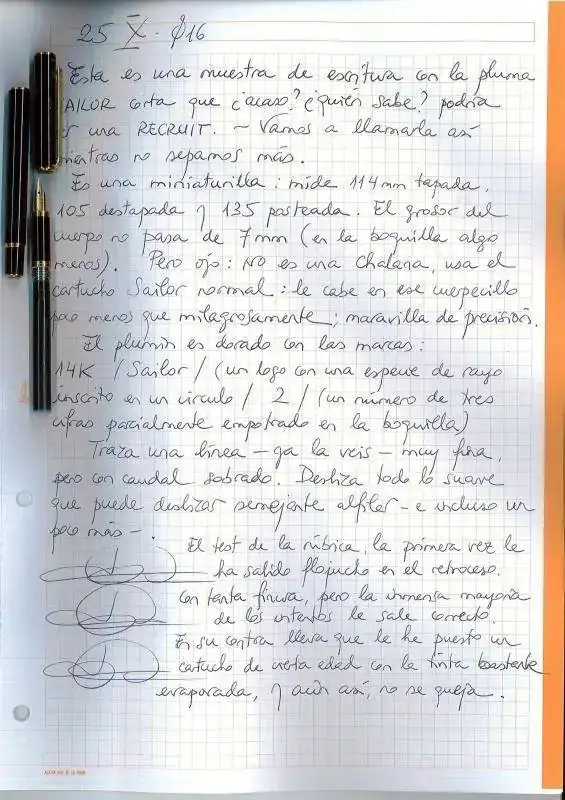 25 X · 16
Esta es una muestra de escritura con la pluma
AILOR corta que ¿acaso? ¿quién sabe? podría
r una RECRUIT. ~ Vamos a llamarla así
mientras no sepamos más.
Es una miniaturilla: mide 114 mm tapada,
105 destapada y 135 posteada. El grosor del
cuerpo no pasa de 7 mm (en la boquilla algo
menos). Pero ojo: NO es una Chalana, usa el
cartucho Sailor normal: le cabe en ese cuerpecillo
poco menos que milagrosamente; maravilla de precisión.
El plumín es dorado con las marcas:
14K / Sailor / (un logo con una especie de rayo
inscrito en un círculo / 2 / (un número de tres
cifras parcialmente empotrado en la boquilla)
Traza una línea — ya la veis — muy fina,
pero con caudal sobrado. Desliza todo lo suave
que puede deslizar semejante alfiler — e incluso un
poco más —.
El test de la rúbrica, la primera vez le
ha salido flojucho en el retroceso.
Con tanta finura, pero la inmensa mayoría
de los intentos le sale correcto.
En su contra lleva que le he puesto un
cartucho de cierta edad con la tinta bastante
evaporada, y aún así, no se queja.